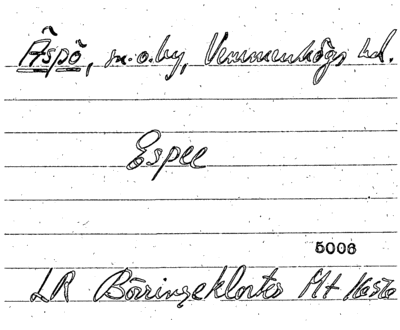 Äspö, sn.o.by, Vemmenhögs hd.
Espee
5006
LR Börringekloster Mt